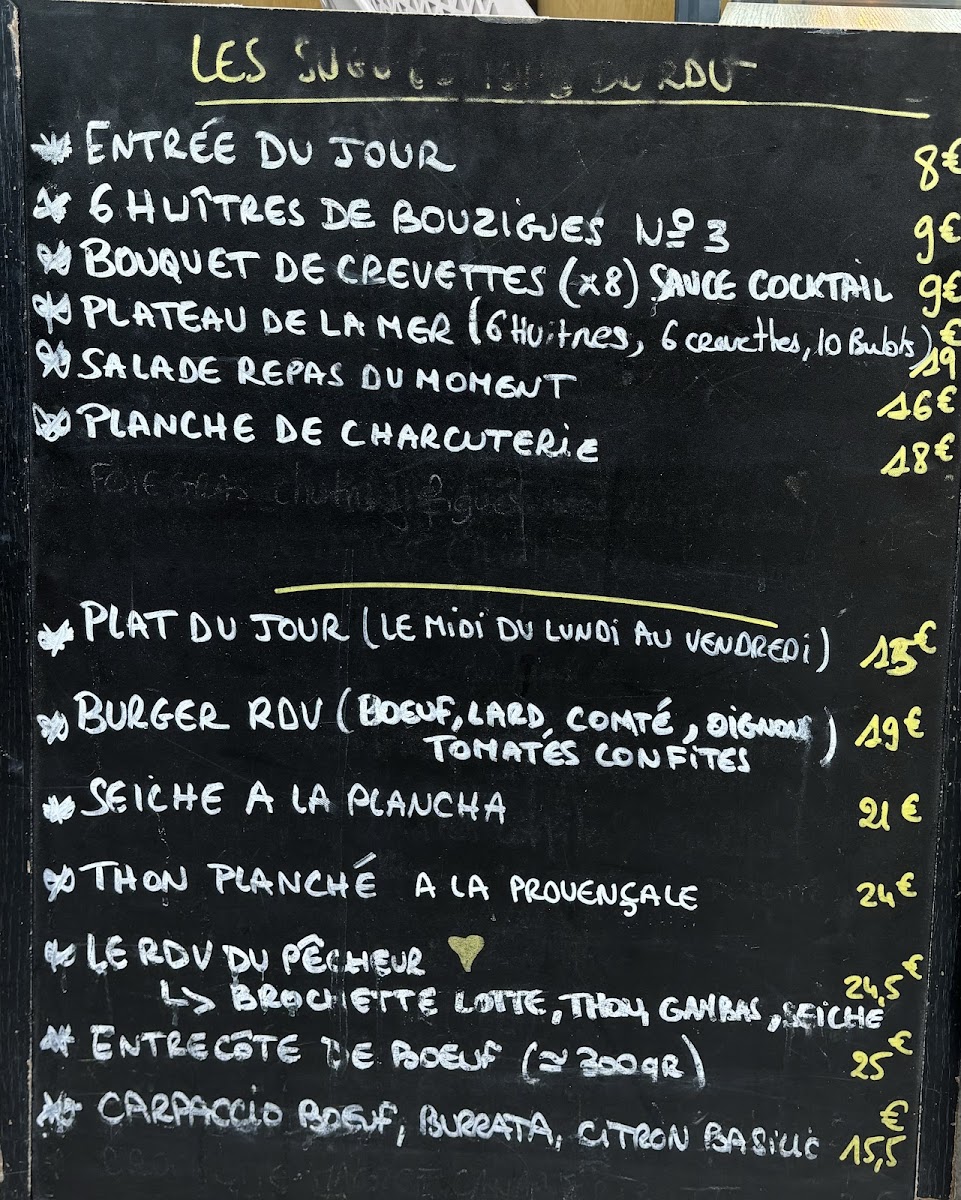 LES SUGGESTIONS DU RDV
* ENTRÉE DU JOUR 8€
* 6 HUÎTRES DE BOUZIGUES Nº 3 9€
* BOUQUET DE CREVETTES (x8) SAUCE COCKTAIL 9€
* PLATEAU DE LA MER (6 Huitres, 6 crevettes, 10 Bulots) 19€
* SALADE REPAS DU MOMENT 16€
* PLANCHE DE CHARCUTERIE 18€
FOIE GRAS chutney figues
* PLAT DU JOUR (LE MIDI DU LUNDI AU VENDREDI) €
* BURGER RDV (BOEUF, LARD, COMTÉ, OIGNONS 19€
TOMATÉS CONFITES)
* SEICHE A LA PLANCHA 21€
* THON PLANCHÉ A LA PROVENÇALE 24€
* LE RDV DU PÊCHEUR
↳ BROCHETTE LOTTE, THON, GAMBAS, SEICHE 24,5€
* ENTRECÔTE DE BOEUF (≃300gR) 25€
* CARPACCIO BOEUF, BURRATA, CITRON BASILIC 15,5€